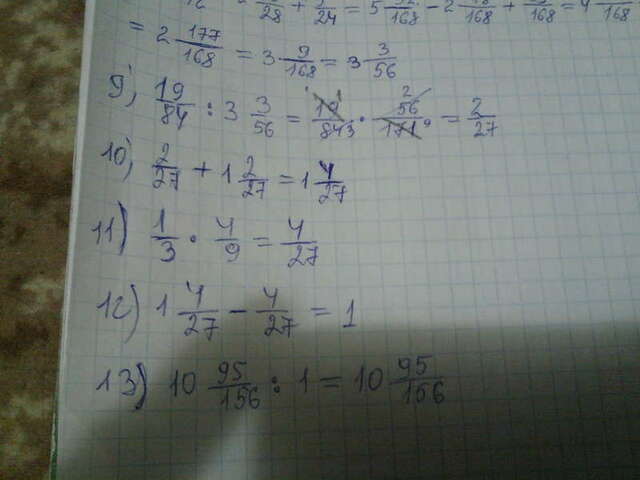 28 + 24 = 5 168 - 2 168 + 168 = 4 168
= 2 177/168 = 3 9/168 = 3 3/56
9) 19/84 : 3 3/56 = 19 1/84 3 · 56 2/171 9 = 2/27
10) 2/27 + 1 2/27 = 1 4/27
11) 1/3 · 4/9 = 4/27
12) 1 4/27 - 4/27 = 1
13) 10 95/156 : 1 = 10 95/156